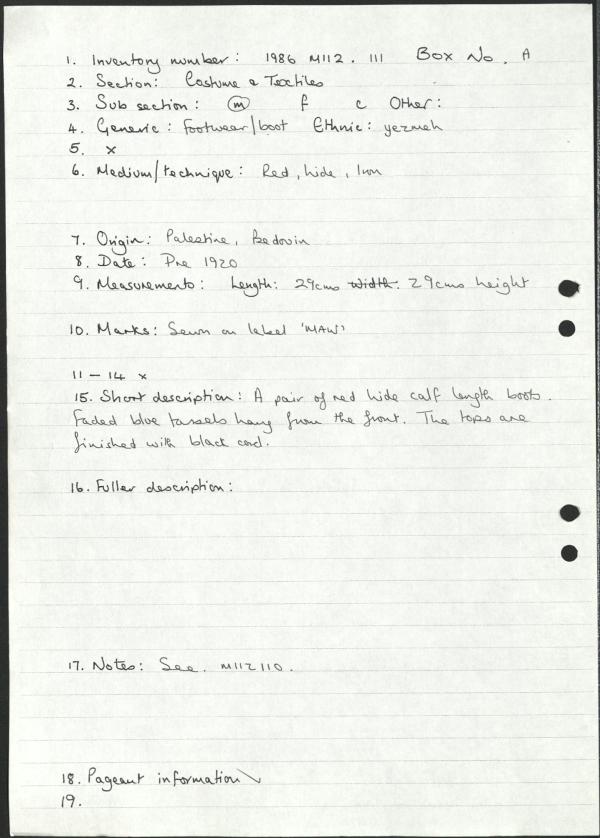 1. Inventory number: 1986 M112. 111 Box No. A
2. Section: Costume & Textiles
3. Sub section: m f c Other:
4. Generic: footwear/boot Ethnic: yezmeh
5. x
6. Medium/technique: Red, hide, Iron
7. Origin: Palestine, Bedouin
8. Date: Pre 1920
9. Measurements: Length: 29cms width: 29cms height
10. Marks: Sewn on label 'MAW'
11 - 14 x
15. Short description: A pair of red hide calf length boots.
Faded blue tassels hang from the front. The tops are
finished with black cord.
16. Fuller description:
17. Notes: See. M112 110.
18. Pageant information \
19.